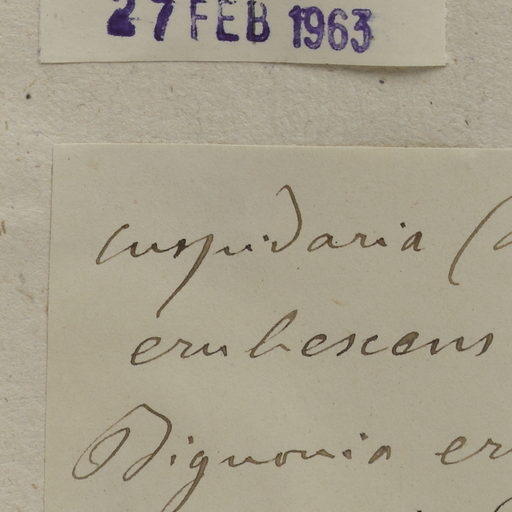 27 FEB 1963
cuspidaria (
erubescens
Bignonia er